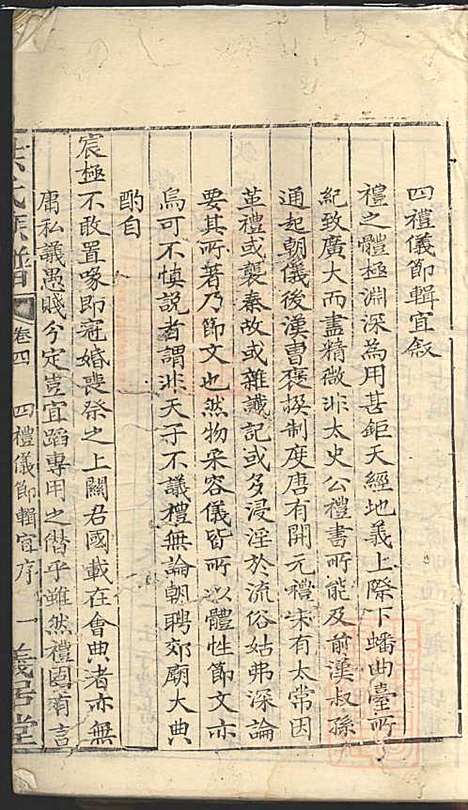 四禮儀節輯宜叙
禮之體極淵深為用甚鉅天經地義上際下蟠曲臺所
紀致廣大而盡精微非太史公禮書所能及前漢叔孫
通起朝儀後漢曹褒撰制度唐有開元禮味有太常因
革禮或襲秦故或雜讖記或多浸淫於流俗姑弗深論
要其所著乃節文也然物采容儀皆所以體性節文亦
烏可不慎說者謂非天子不議禮無論朝聘郊廟大典
酌自
宸極不敢置喙即冠婚喪祭之上關君國載在會典者亦無
庸私議愚賤分定豈宜蹈專用之僭乎雖然禮固有言
氏族譜 卷四 四禮儀節輯宜序 一 義居堂